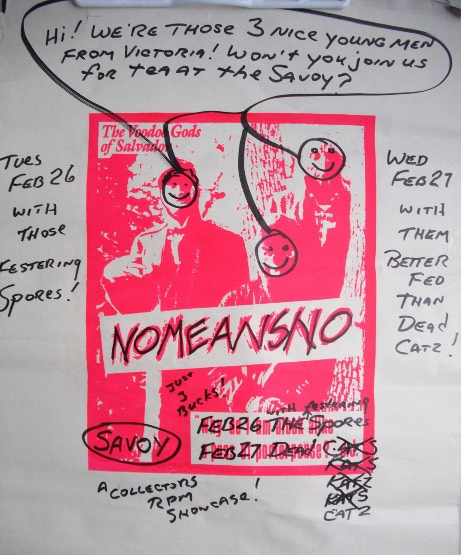 Hi! WE'RE THOSE 3 NICE YOUNG MEN
FROM VICTORIA! WON'T YOU JOIN US
FOR TEA AT the SAVOY?
The Voodoo Gods
of Salvador
TUES
FEB 26
WITH
THOSE
FESTERING
SPORES!
WED
FEB 27
WITH
THEM
BETTER
FED
THAN
DEAD
CATZ!
NOMEANSNO
JUST
3
BUCKS!
with FESTERING
FEB 26 THE SPORES
FEB 27 DEAD
CATZ
SAVOY
A COLLECTORS
RPM
SHOWCASE!